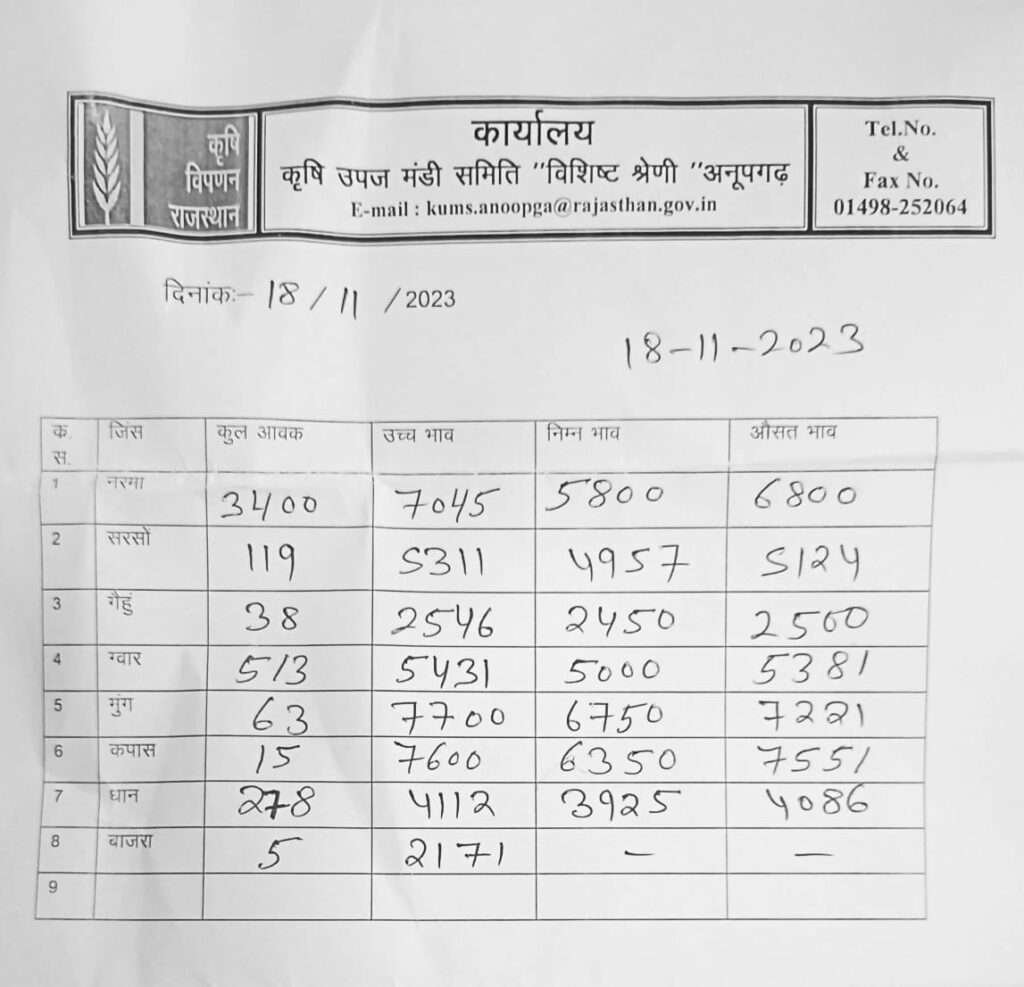 कृषि
विपणन
राजस्थान
कार्यालय
कृषि उपज मंडी समिति "विशिष्ट श्रेणी "अनूपगढ़
E-mail : kums.anoopga@rajasthan.gov.in
Tel.No.
&
Fax No.
01498-252064
दिनांकः– 18 / 11 / 2023
18-11-2023
क. स. जिंस कुल आवक उच्च भाव निम्न भाव औसत भाव
1 नरमा 3400 7045 5800 6800
2 सरसों 119 5311 4957 5124
3 गैहुं 38 2546 2450 2500
4 ग्वार 513 5431 5000 5381
5 मुंग 63 7700 6750 7221
6 कपास 15 7600 6350 7551
7 धान 278 4112 3925 4086
8 बाजरा 5 2171 – –
9